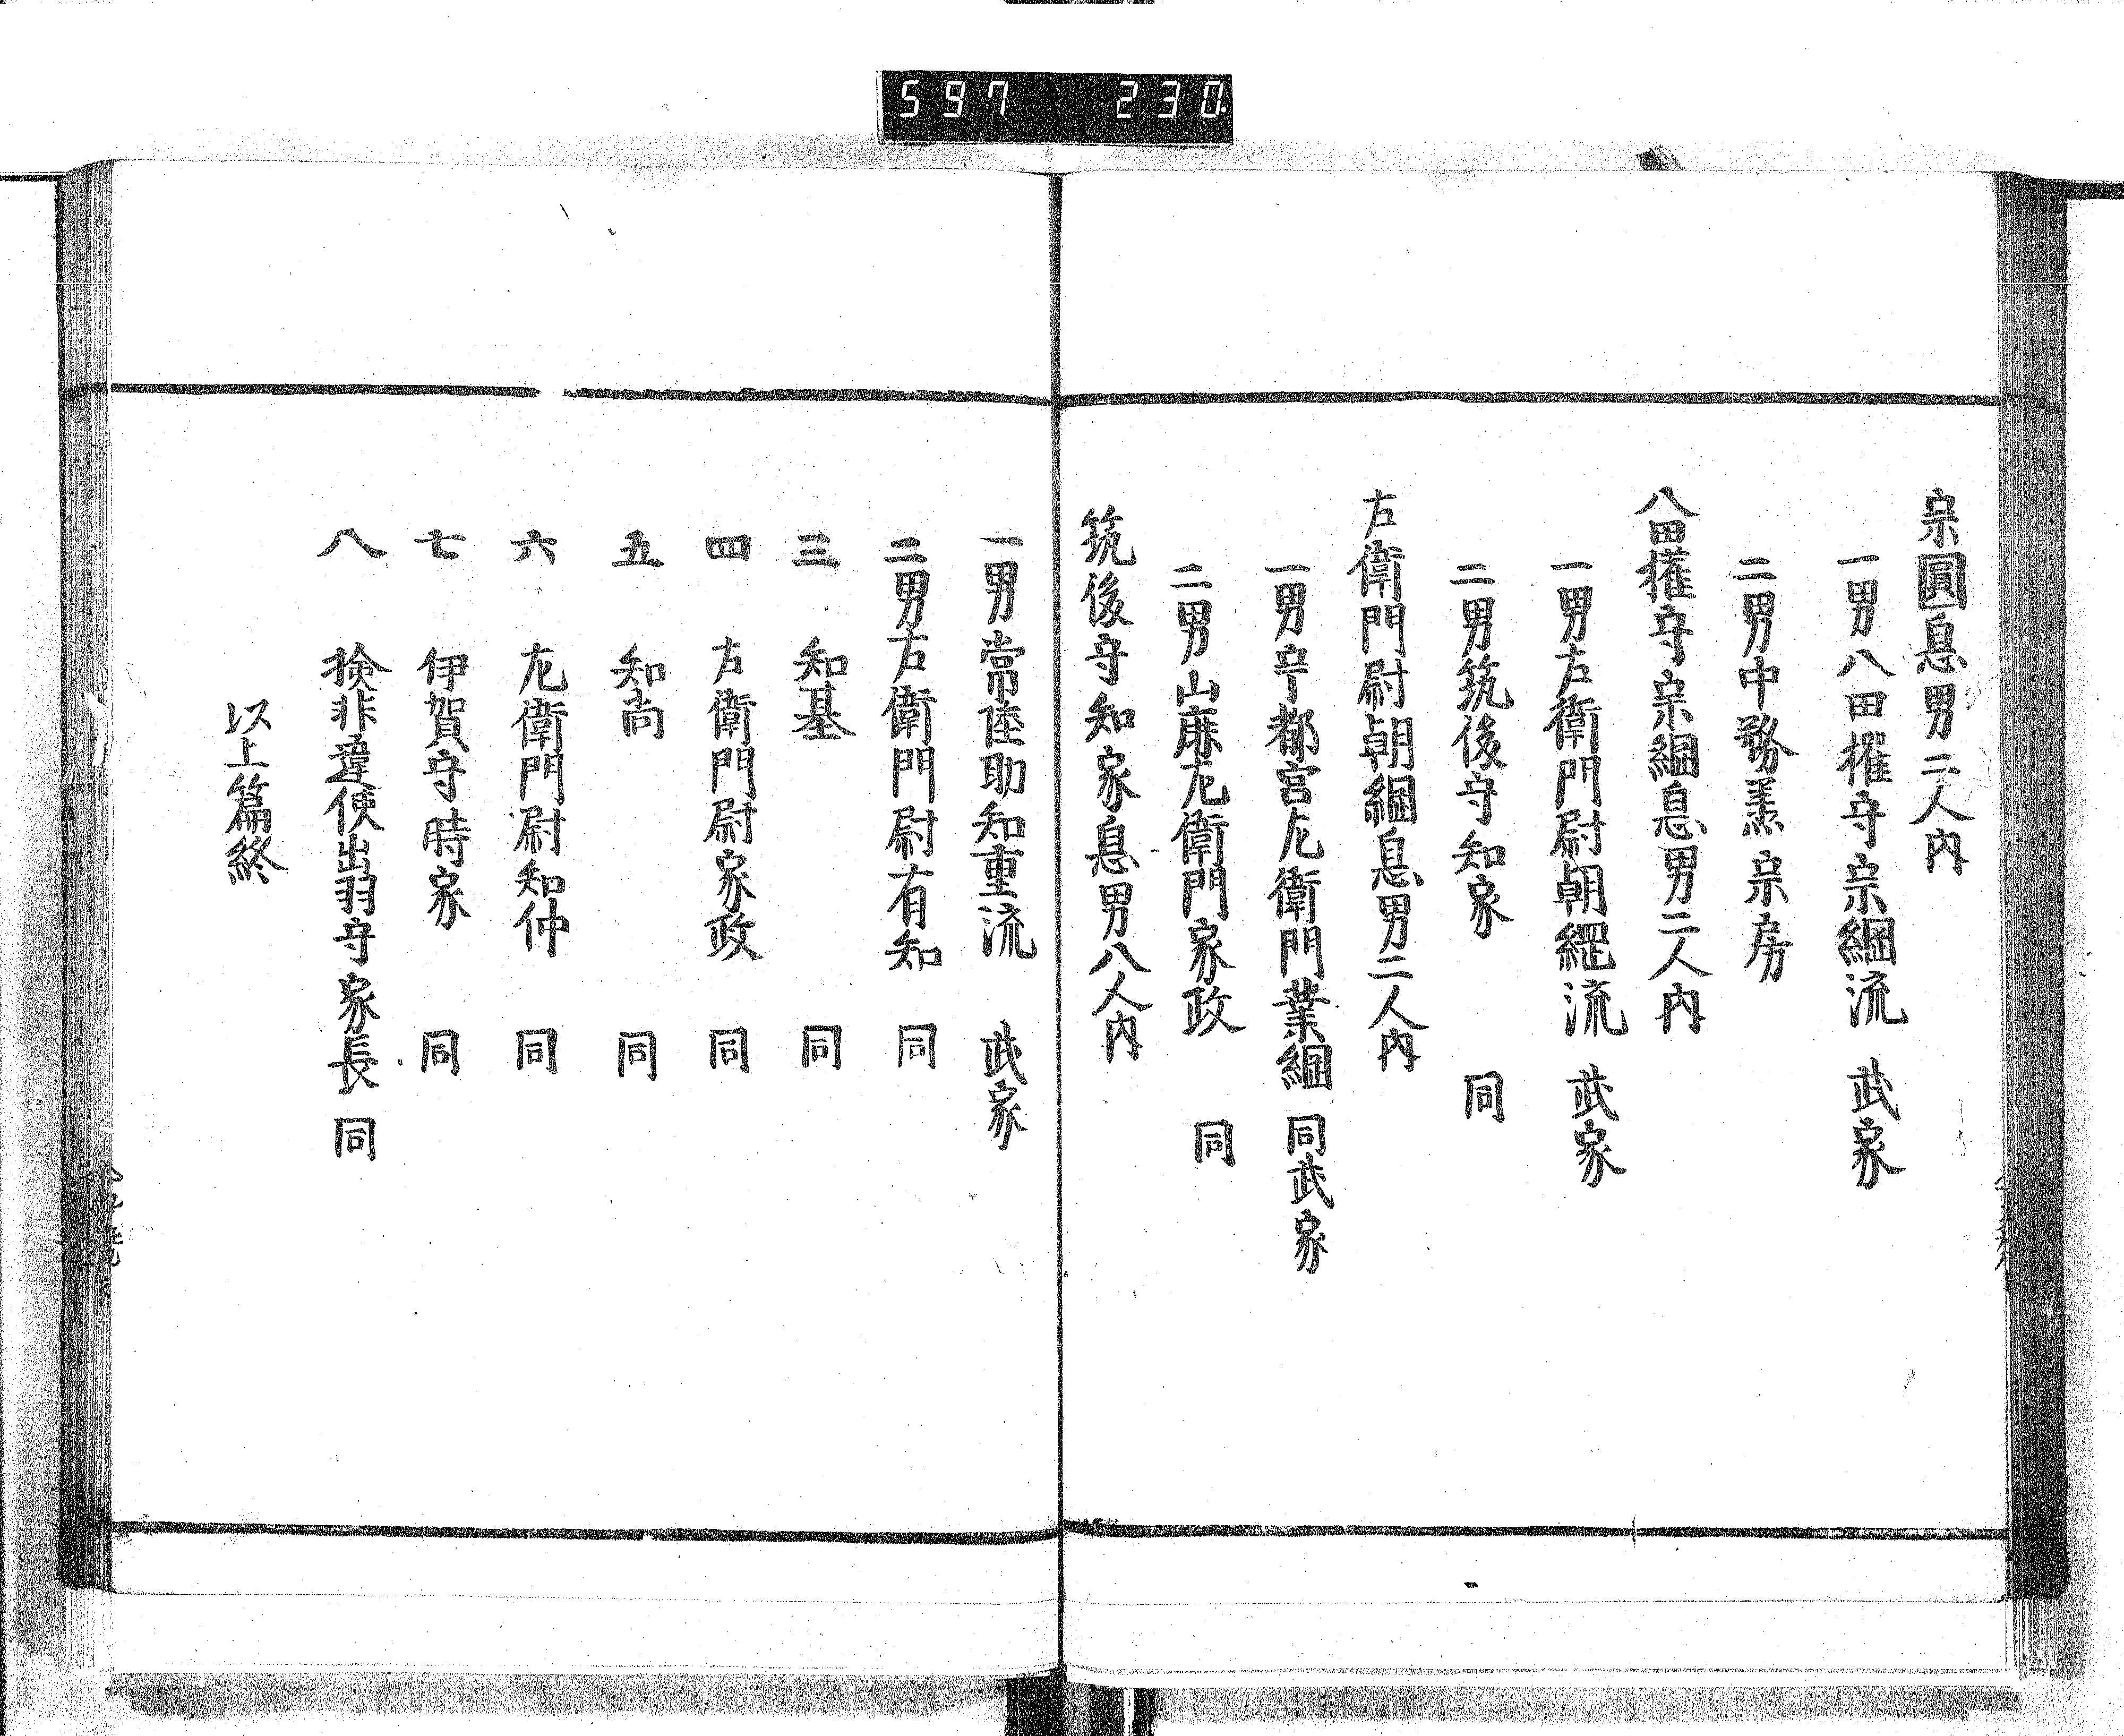 597 230
宗圓息男二人内
一男八田權守宗綱流 武家
二男中務羔宗房
八田權守宗綱息男二人内
一男左衛門尉朝綱流 武家
二男筑後守知家 同
左衛門尉朝綱息男二人内
一男宇都宮左衛門業綱 同武家
二男山鹿左衛門家政 同
筑後守知家息男八人内
一男常陸助知重流 武家
二男左衛門尉有知 同
三 知基 同
四 左衛門尉家政 同
五 知尚 同
六 左衛門尉知仲 同
七 伊賀守時家 同
八 撿非違使出羽守家長 同
以上篇終